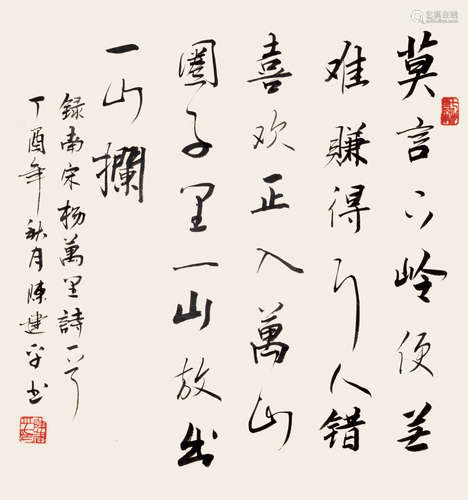 莫言下岭便無
难赚得行人错
喜欢正入萬山
圈子里一山放出
一山攔
録南宋杨萬里詩一首
丁酉年秋月陳建平书